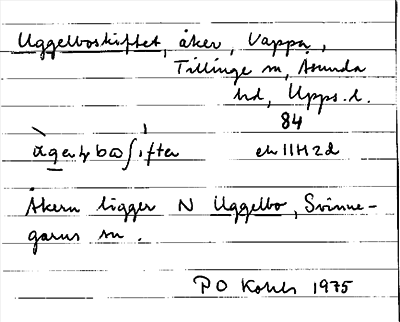 Uggelboskiftet, åker, Vappa,
Tillinge sn, Åsunda
hd, Upps.l.
84
ek 11H2d
Åkern ligger N Uggelbo, Svinne-
garns sn.
P O Kohls 1975